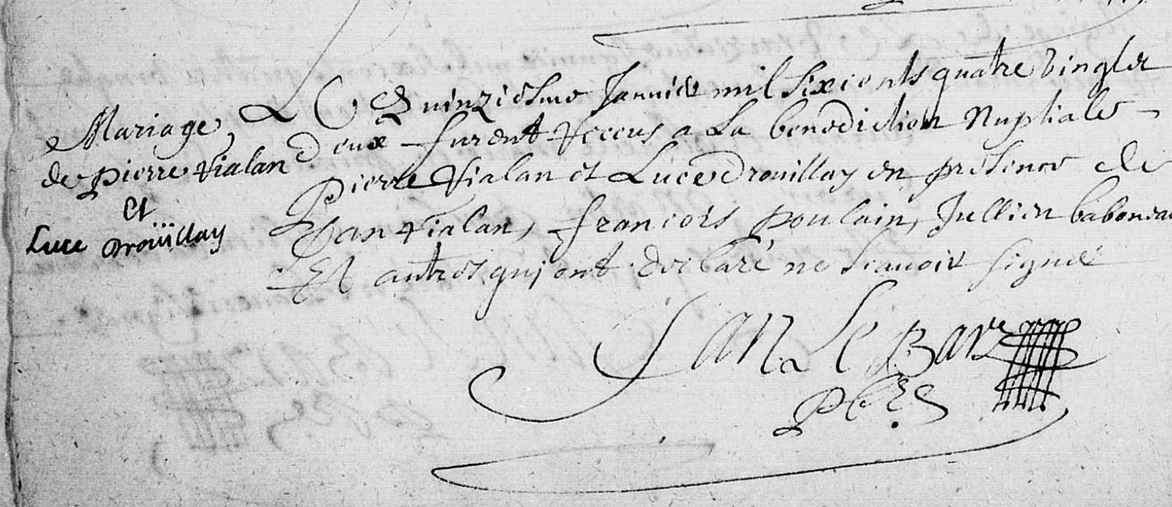 Mariage
de Pierre Vialan
Et
Luce Droüillay
Le Quinziesme Janvier mil Sixcents quatre Vingtet
deux furent Receus a La benediction Nuptiale
Pierre Vialan et Luce Drouillay en presence de
Jan Vialan, francois poulain, Jullien baboneau
Et autres qui ont declaré ne scauoir signer
Jan Le Barz
Pbre